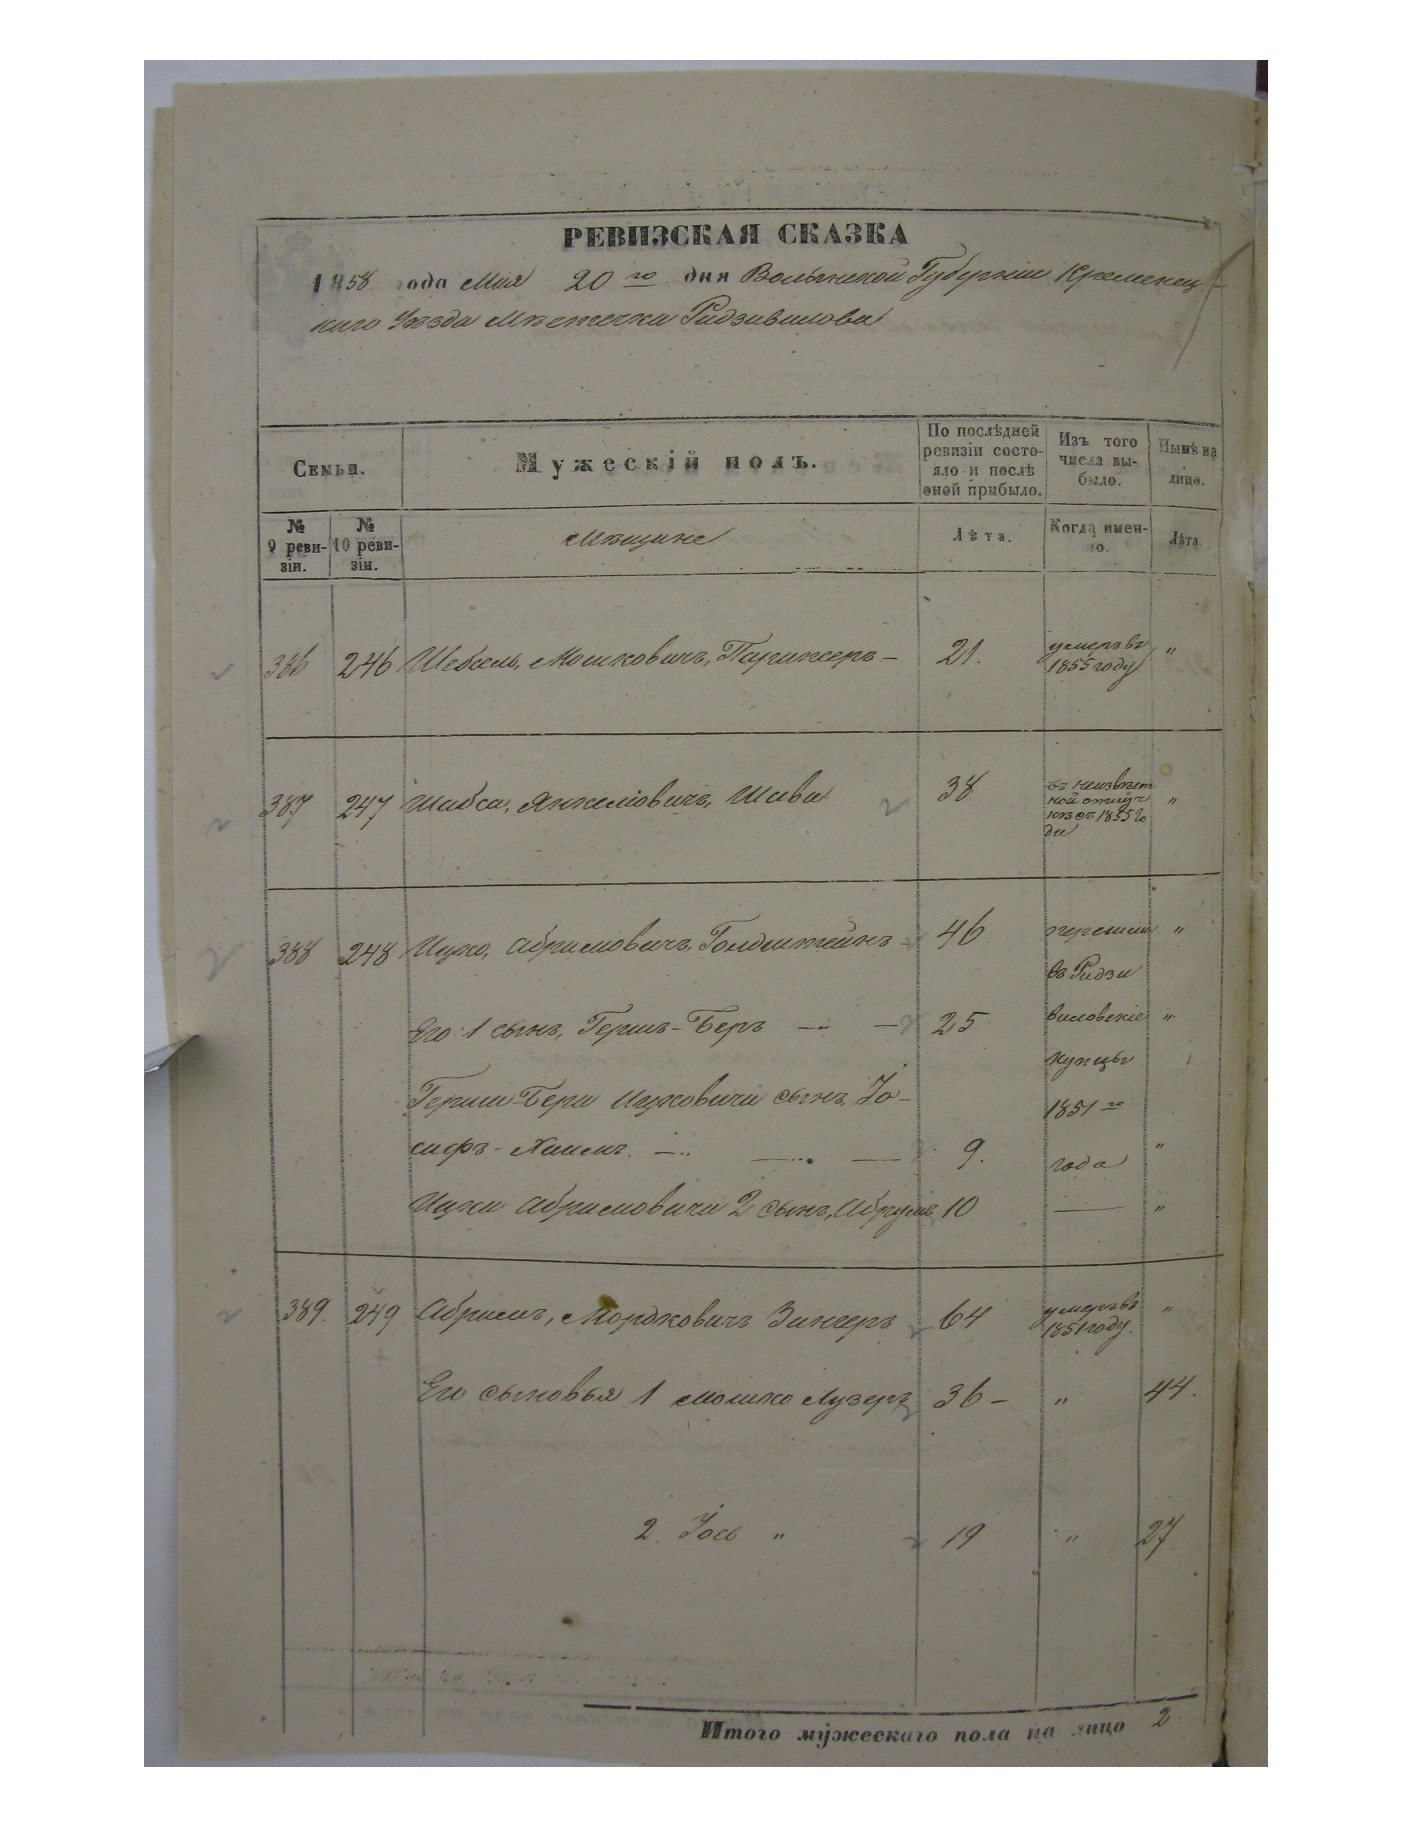 РЕВИЗСКАЯ СКАЗКА
1858 года Мая 20 го дня Волынской Губерніи Кременец-
каго Уѣзда Мѣстечка Радзивилова
Семьи.
Мужескій полъ.
По послѣдней ревизіи состо-
яло и послѣ оней прибыло.
Изъ того числа вы-
было.
Нынѣ на лицо.
№ 9 реви-
зіи.
№ 10 реви-
зіи.
Мѣщане
Лѣта.
Когда имен-
но.
Лѣта
386 246 Шебсель, Мошковичъ, Парижеръ – 21. умеръ въ "
1855 году
387 247 Шабса, Янкеліовичъ, Шава 38 въ неизвѣст
ной отлуч
кѣ съ 1855 го
да "
388 248 Ицко, Абрамовичъ, Гольдштейнъ 46 перешли "
въ Радзи
Его 1 сынъ, Гершъ-Беръ — — 25 виловскіе "
купцы
Герша-Бера Ицковича сынъ, Іо- 1851 го
сифъ-Хаимъ. — — — 9. года "
Ицки Абрамовича 2 сынъ, Абрумъ 10 — "
389. 249 Абрамъ, Мордковичъ Зингеръ 64 умеръ въ "
1851 году.
Его сыновья 1 Мошко Лузеръ 36 – " 44.
2. Іось " 19 " 27
Итого мужескаго пола на лицо 2